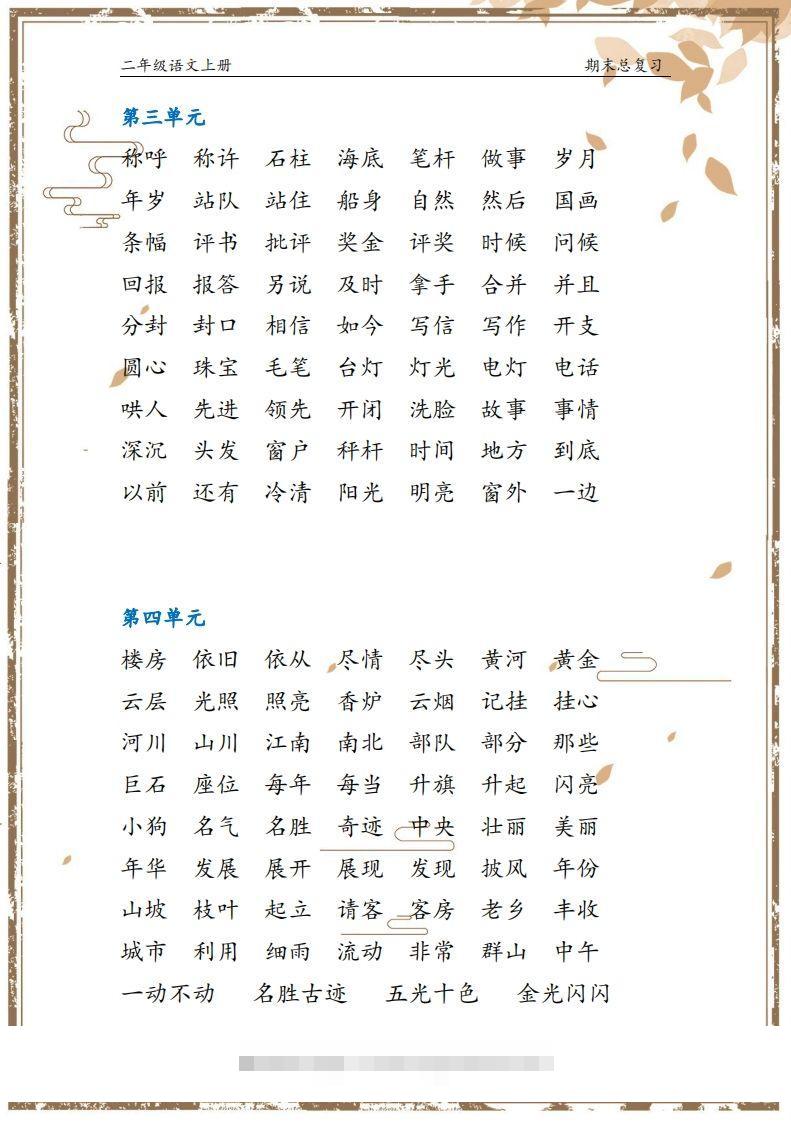 二年级语文上册 期末总复习
第三单元
称呼 称许 石柱 海底 笔杆 做事 岁月
年岁 站队 站住 船身 自然 然后 国画
条幅 评书 批评 奖金 评奖 时候 问候
回报 报答 另说 及时 拿手 合并 并且
分封 封口 相信 如今 写信 写作 开支
圆心 珠宝 毛笔 台灯 灯光 电灯 电话
哄人 先进 领先 开闭 洗脸 故事 事情
深沉 头发 窗户 秤杆 时间 地方 到底
以前 还有 冷清 阳光 明亮 窗外 一边
第四单元
楼房 依旧 依从 尽情 尽头 黄河 黄金
云层 光照 照亮 香炉 云烟 记挂 挂心
河川 山川 江南 南北 部队 部分 那些
巨石 座位 每年 每当 升旗 升起 闪亮
小狗 名气 名胜 奇迹 中央 壮丽 美丽
年华 发展 展开 展现 发现 披风 年份
山坡 枝叶 起立 请客 客房 老乡 丰收
城市 利用 细雨 流动 非常 群山 中午
一动不动 名胜古迹 五光十色 金光闪闪